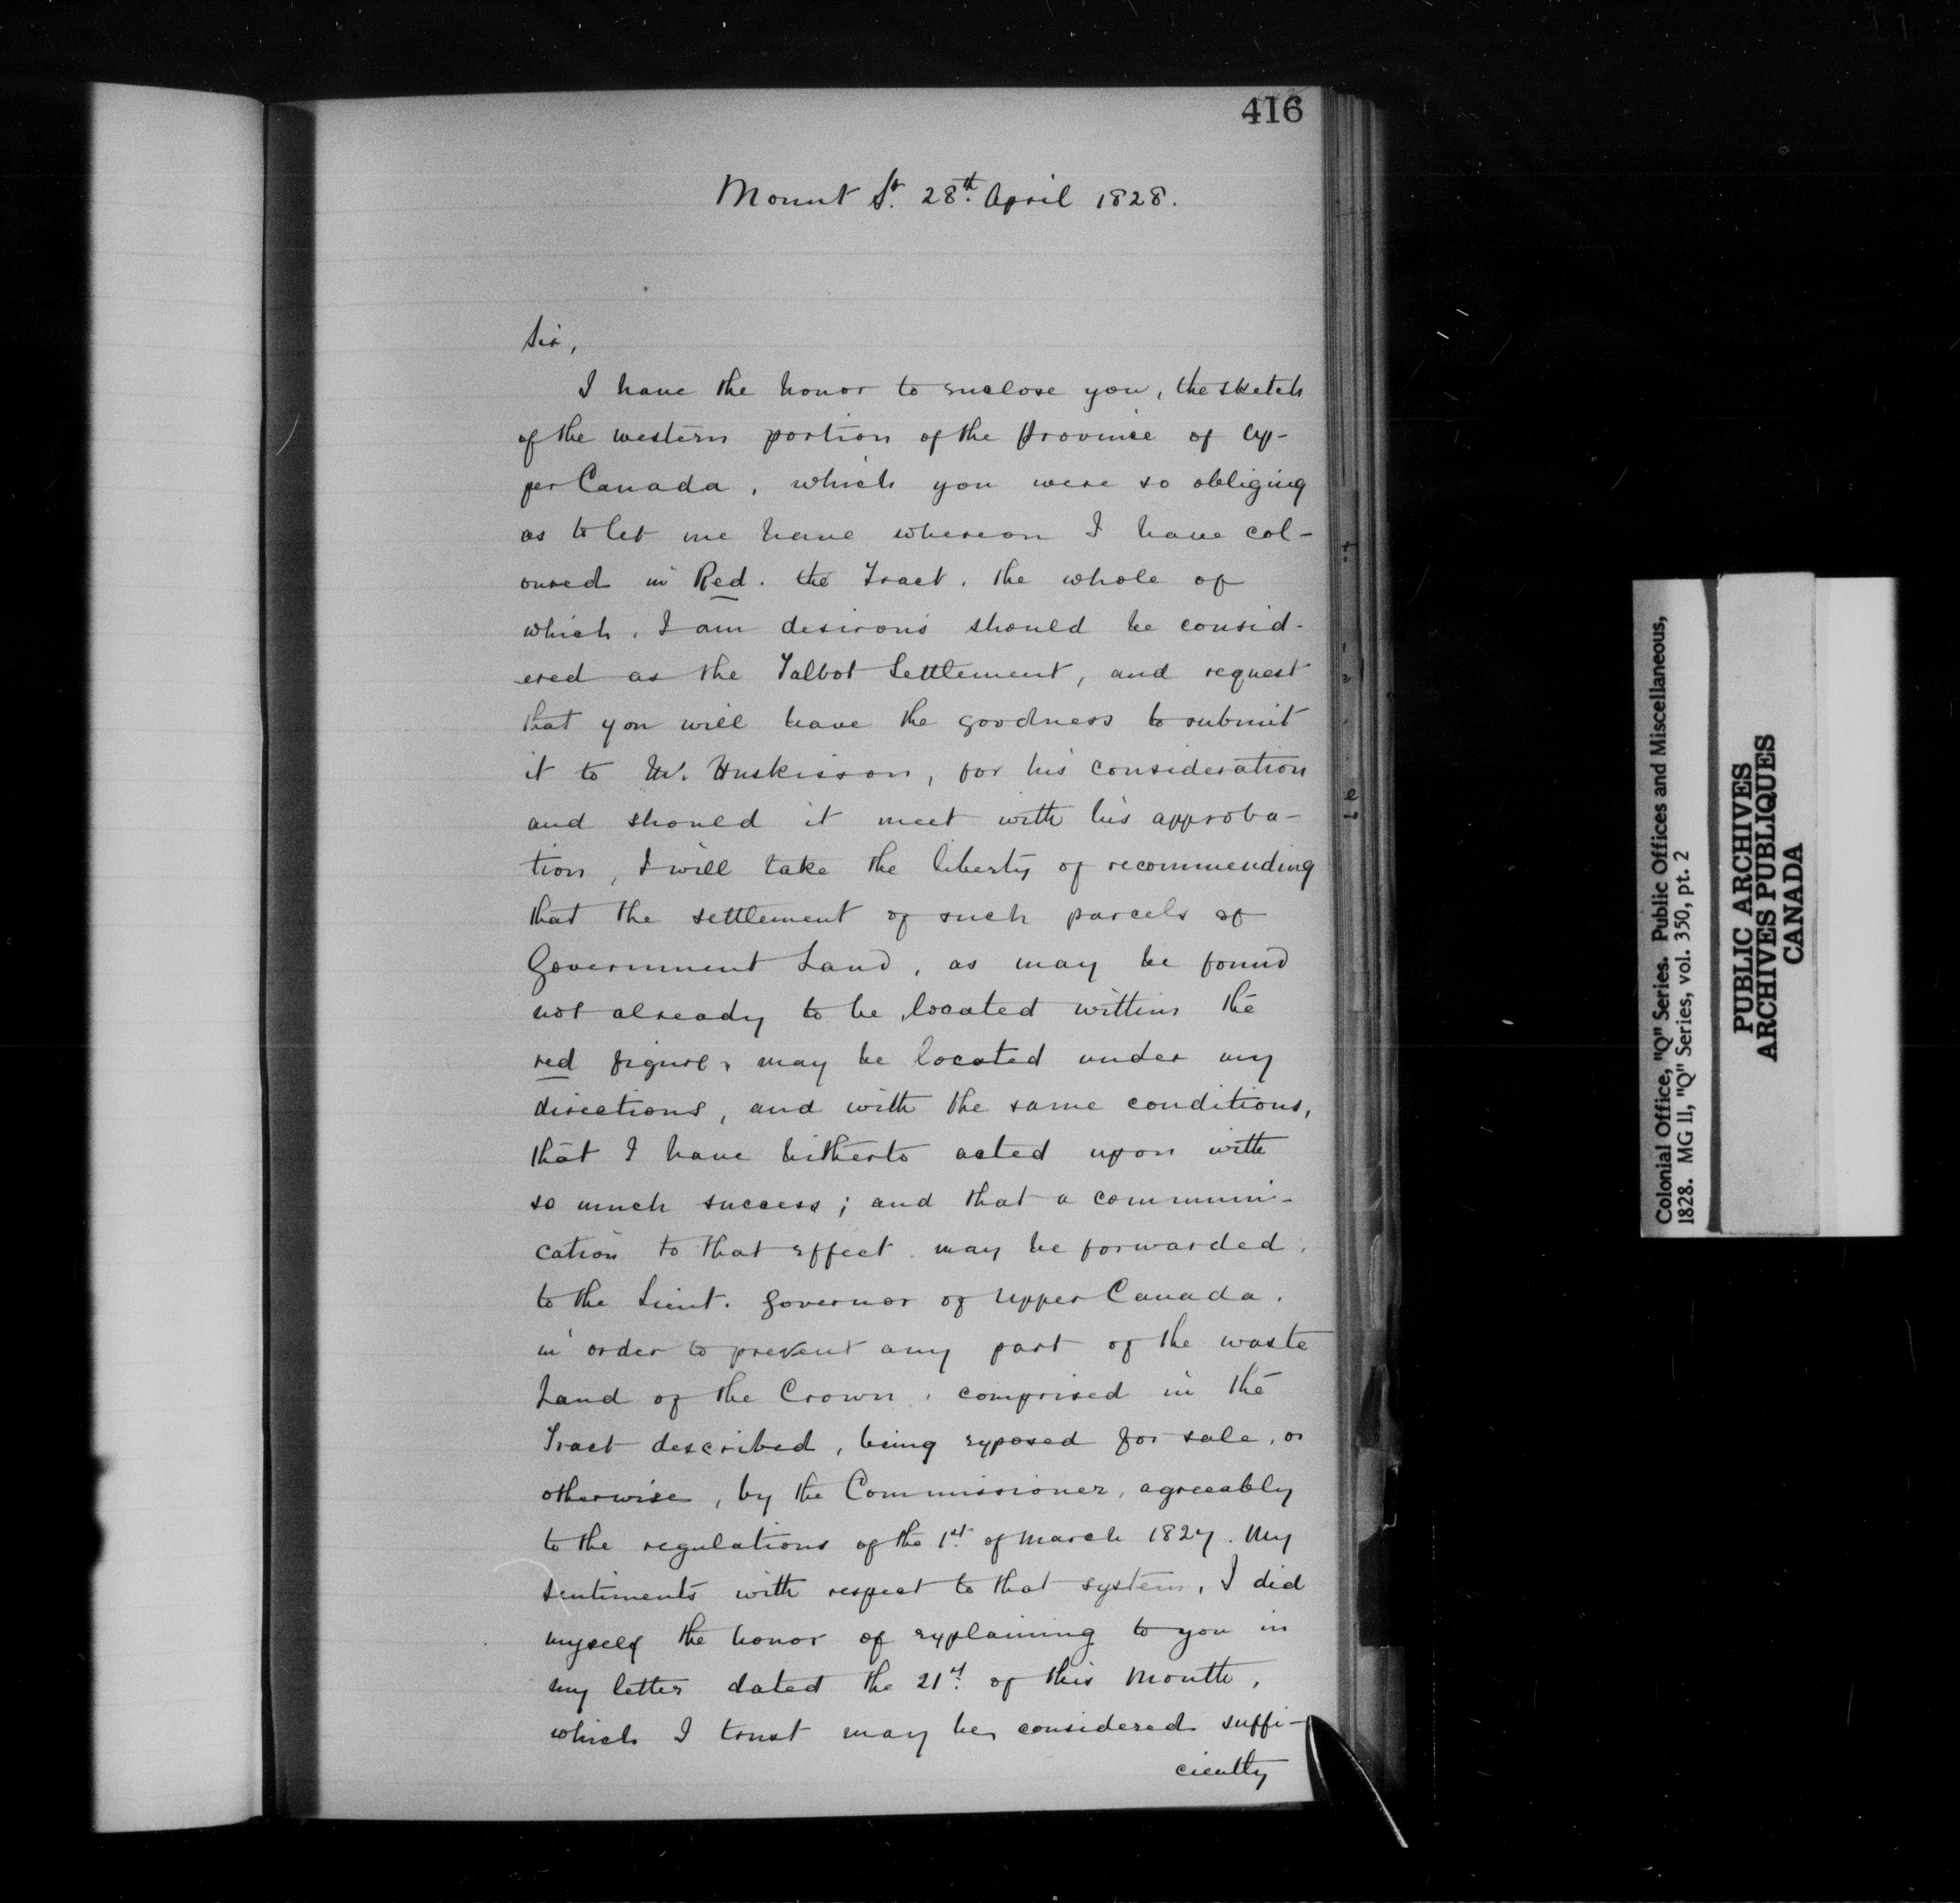 416
Mount St. 28th. April 1828.
Sir,
I have the honor to enclose you, the sketch
of the western portion of the Province of Up-
per Canada, which you were so obliging
as to let me have whereon I have col-
oured in Red. the Tract, the whole of
which, I am desirous should be consid-
ered as the Talbot Settlement, and request
that you will have the goodness to submit
it to Mr. Huskisson, for his consideration
and should it meet with his approba-
tion, I will take the liberty of recommending
that the settlement of such parcels of
Government Land, as may be found
not already to be located within the
red figure, may be located under my
directions, and with the same conditions,
that I have hitherto acted upon with
so much success; and that a communi-
cation to that effect may be forwarded,
to the Lieut. Governor of Upper Canada.
in order to prevent any part of the waste
Land of the Crown, comprised in the
Tract described, being exposed for sale, or
otherwise, by the Commissioner, agreeably
to the regulations of the 1st. of March 1827. My
sentiments with respect to that system, I did
myself the honor of explaining to you in
my letter dated the 21st. of this Month,
which I trust may be considered suffi-
ciently
Colonial Office, "Q" Series. Public Offices and Miscellaneous,
1828. MG 11, "Q" Series, vol. 350, pt. 2
PUBLIC ARCHIVES
ARCHIVES PUBLIQUES
CANADA